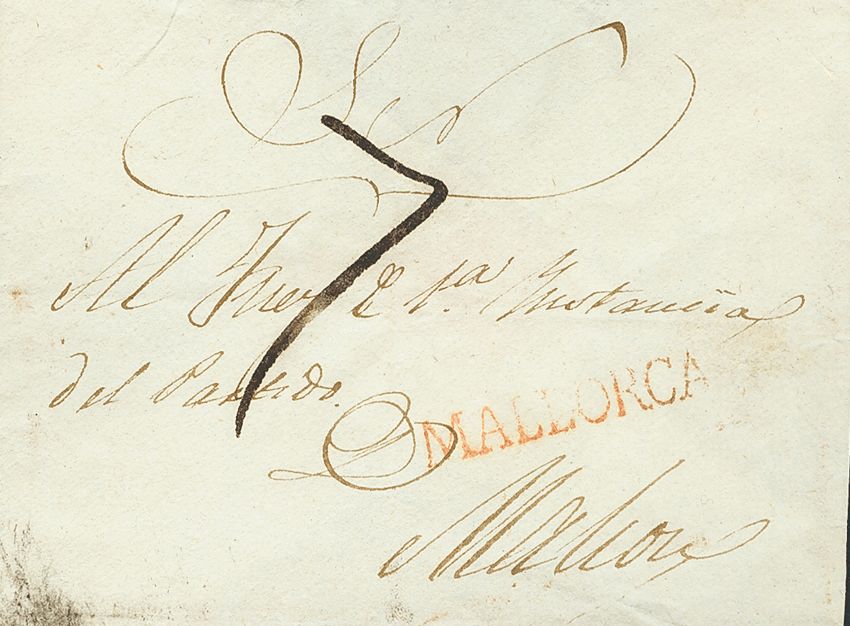 7
Al Juez de 1.ª Ynstancia
del Partido.
MALLORCA
Mahon